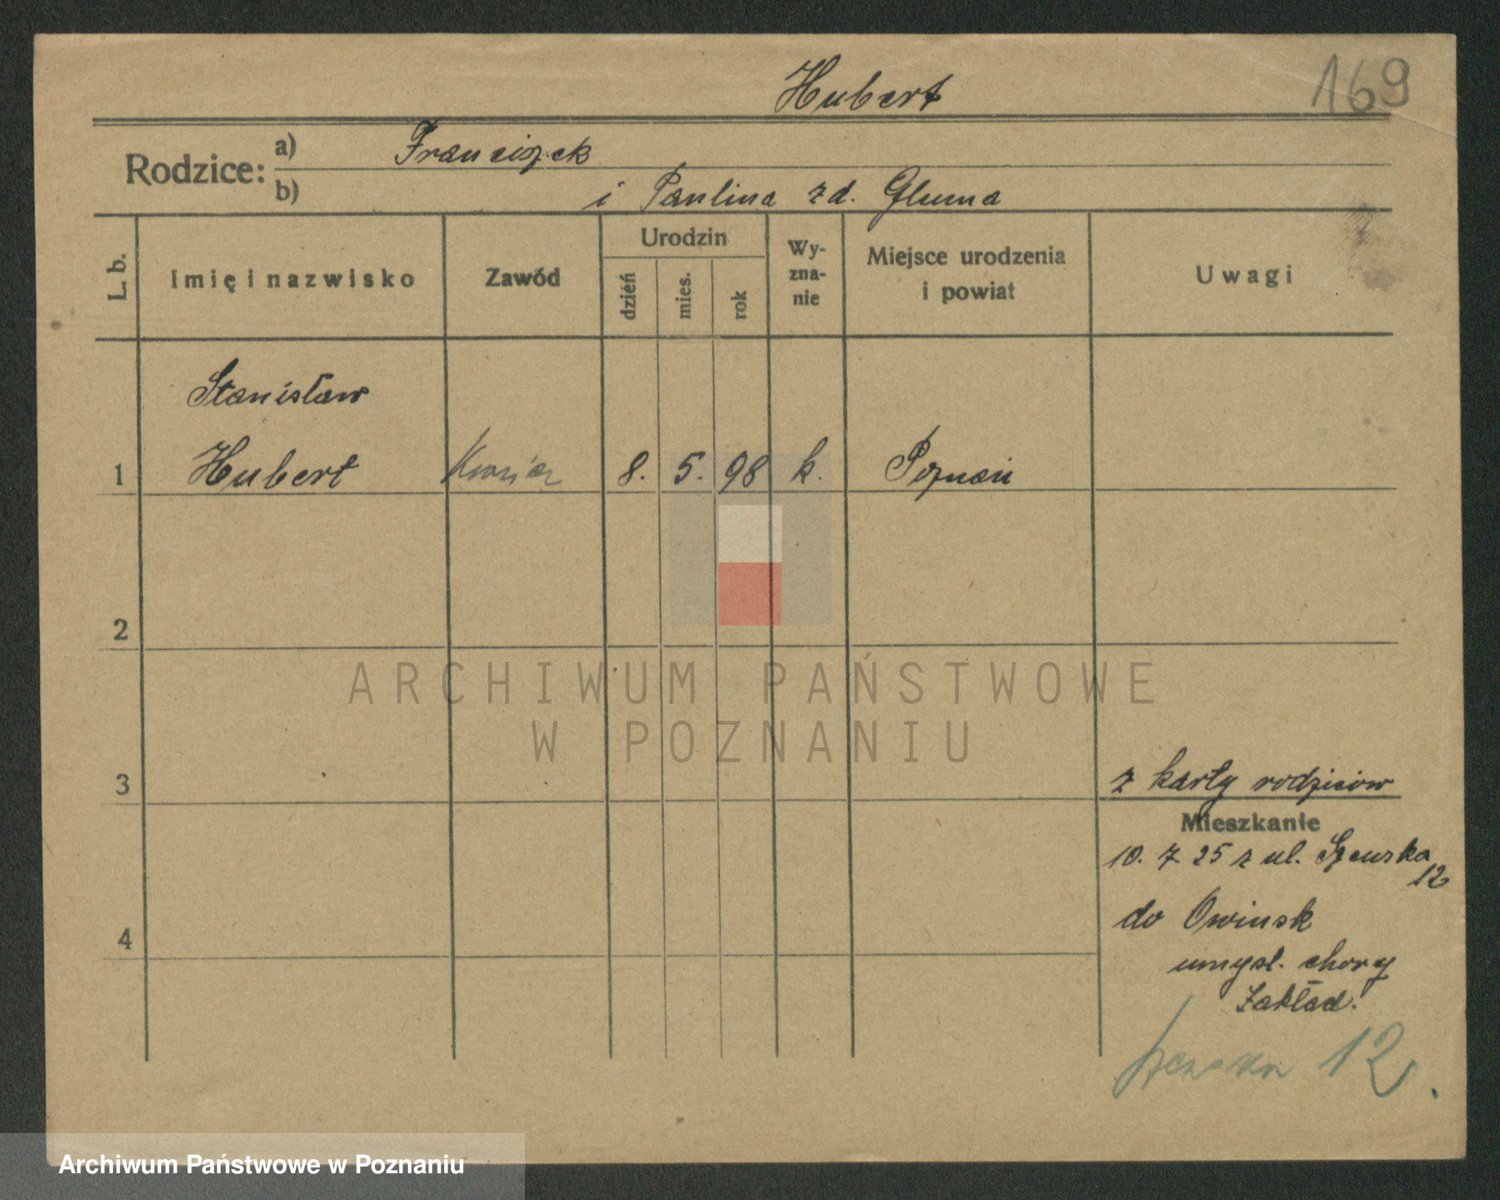 Hubert
169
Rodzice:
a) Franciszek
b) i Paulina zd. Gluma
L. b.
Imię i nazwisko
Zawód
Urodzin
dzień
mies.
rok
Wy-
zna-
nie
Miejsce urodzenia
i powiat
Uwagi
Stanisław
1 Hubert 8. 5. 98 k. Poznań
2
ARCHIWUM PAŃSTWOWE
W POZNANIU
3
z karty rodziców
Mieszkanie
10. 7. 25 z ul. Szewska
12
do Owinsk
4
umysł. chory
Zakład.
12.
Archiwum Państwowe w Poznaniu